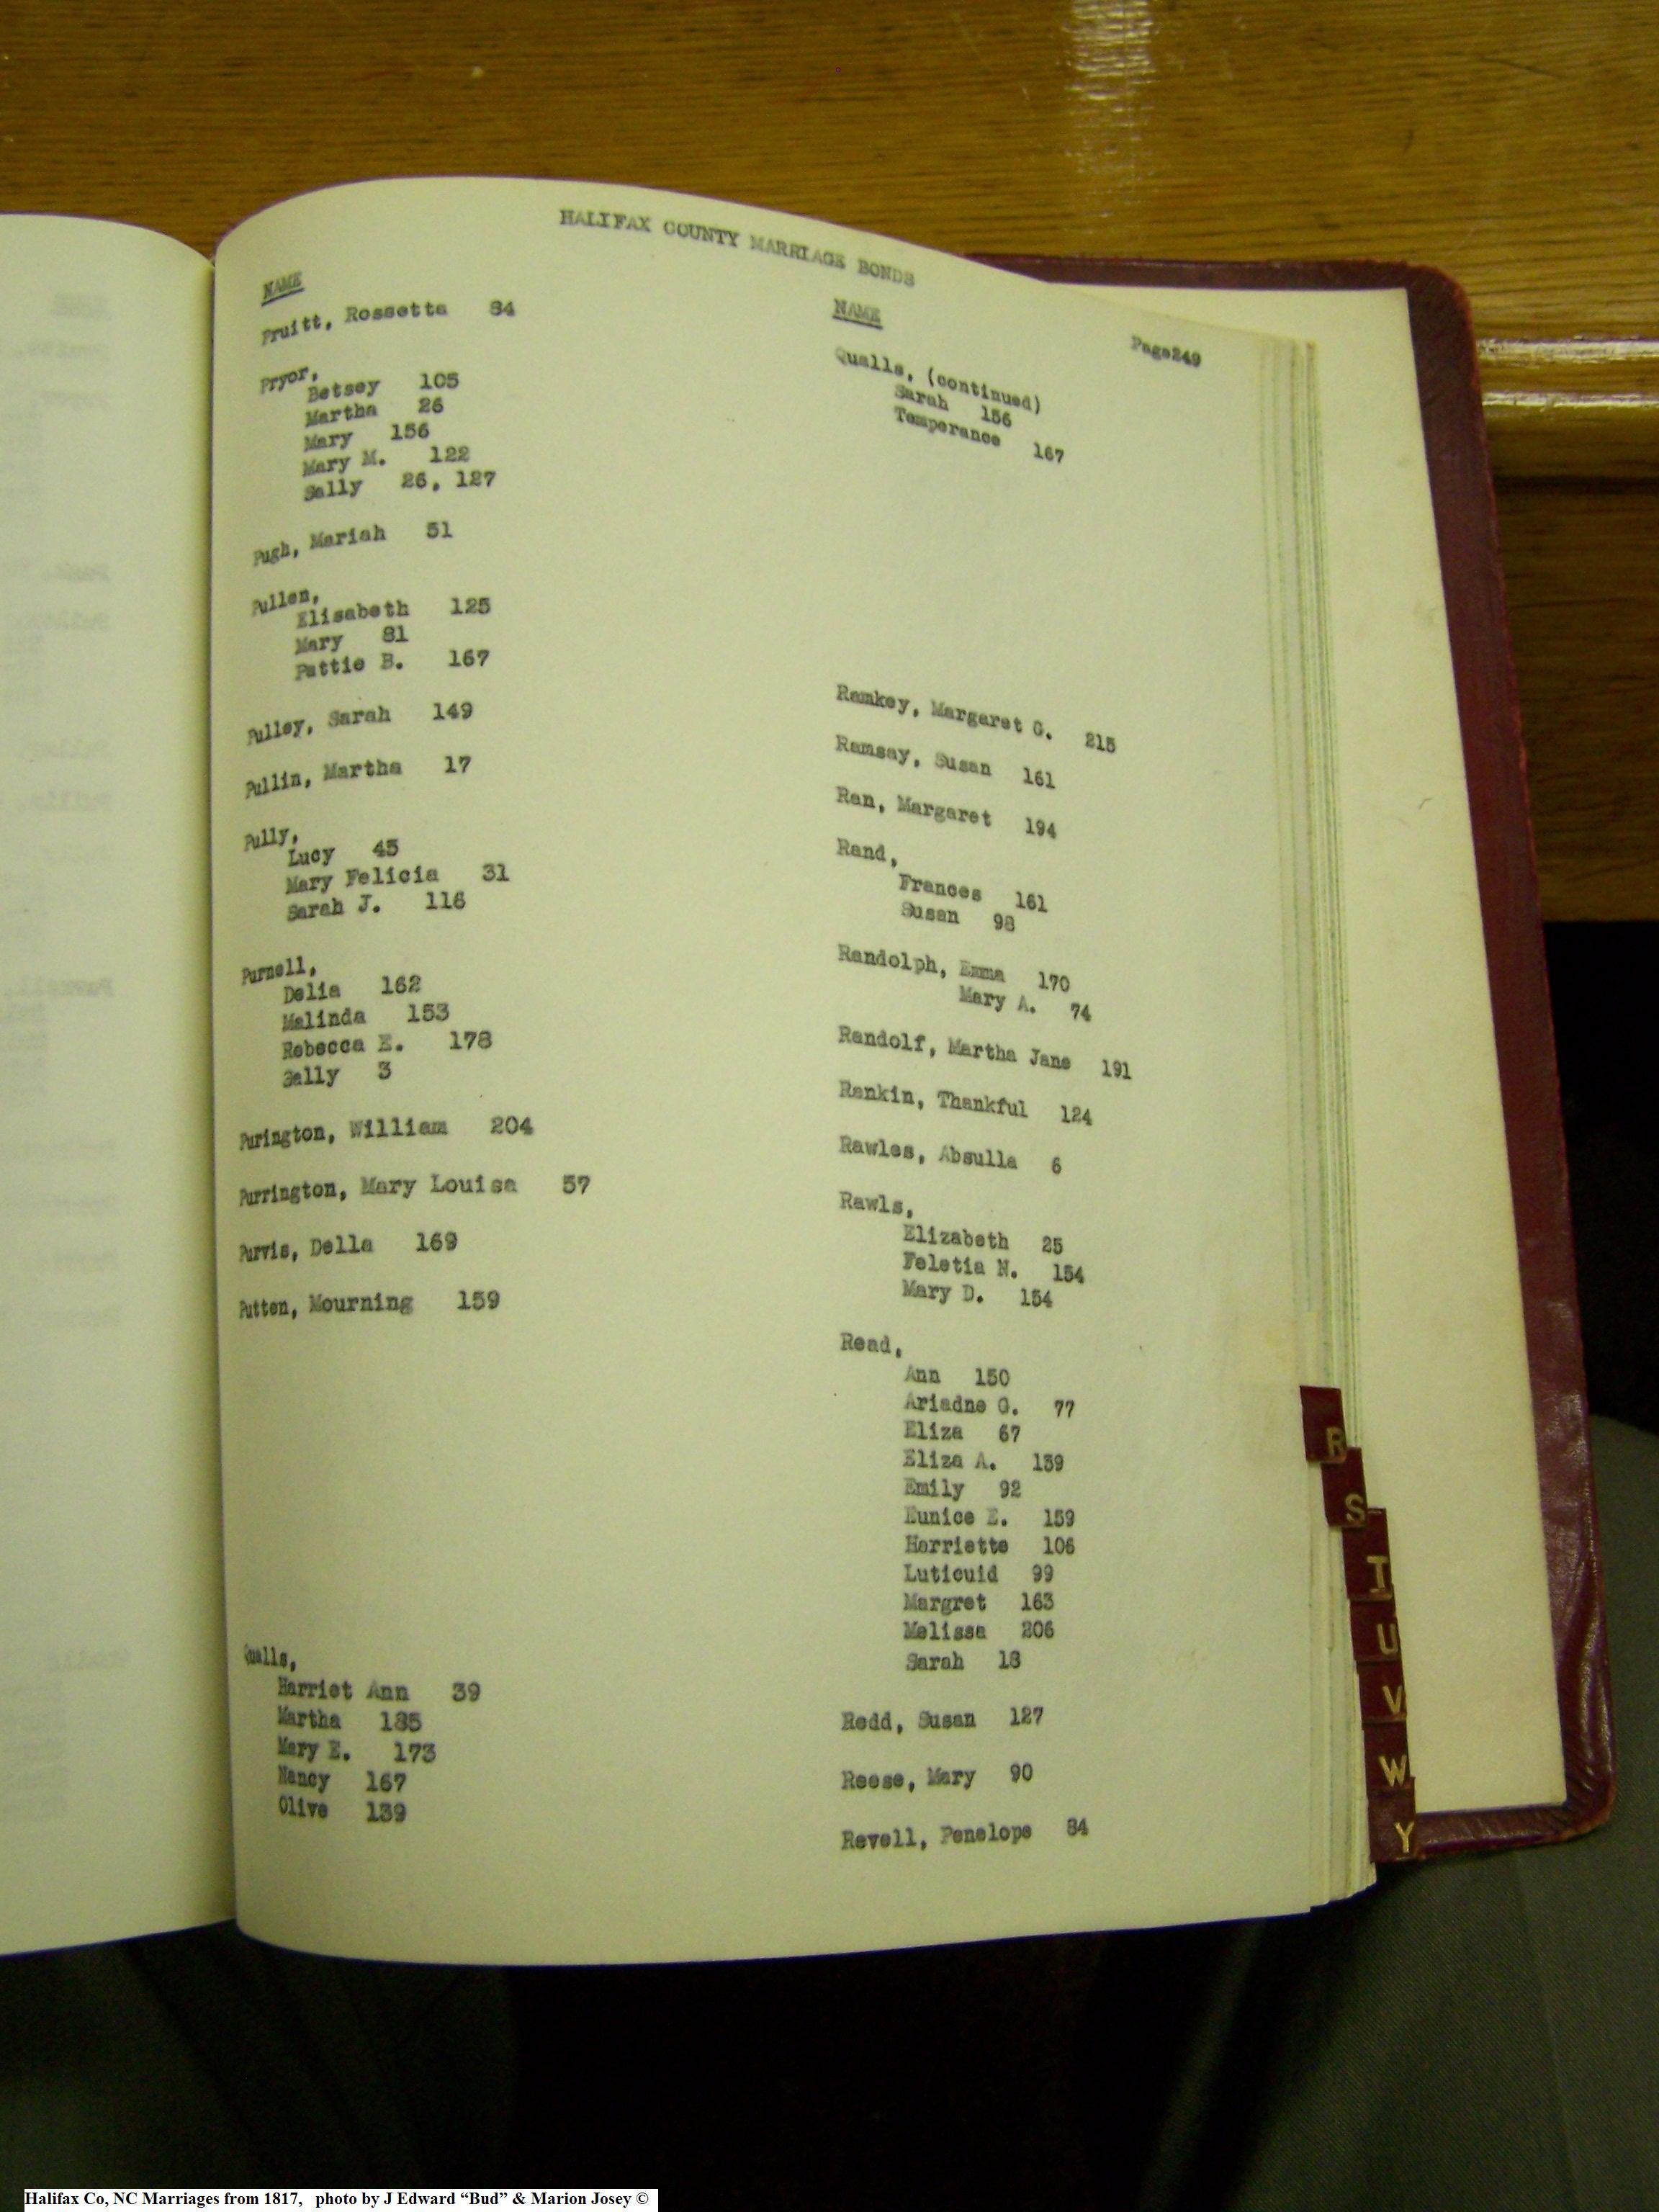 HALIFAX COUNTY MARRIAGE BONDS
Page249
NAME
Pruitt, Rossetta 84
Pryor,
Betsey 105
Martha 26
Mary 156
Mary M. 122
Sally 26, 127
Pugh, Mariah 51
Pullen,
Elisabeth 125
Mary 81
Pattie B. 167
Pulley, Sarah 149
Pullin, Martha 17
Pully,
Lucy 45
Mary Felicia 31
Sarah J. 116
Purnell,
Delia 162
Malinda 153
Rebecca E. 178
Sally 3
Purington, William 204
Purrington, Mary Louisa 57
Purvis, Della 169
Putten, Mourning 159
Qualls,
Harriet Ann 39
Martha 185
Mary E. 173
Nancy 167
Olive 139
NAME
Qualls, (continued)
Sarah 156
Temperance 167
Ramkey, Margaret G. 215
Ramsay, Susan 161
Ran, Margaret 194
Rand,
Frances 161
Susan 98
Randolph, Emma 170
Mary A. 74
Randolf, Martha Jane 191
Rankin, Thankful 124
Rawles, Absulla 6
Rawls,
Elizabeth 25
Feletia N. 154
Mary D. 154
Read,
Ann 150
Ariadne G. 77
Eliza 67
Eliza A. 139
Emily 92
Eunice E. 159
Harriette 106
Luticuid 99
Margret 163
Melissa 206
Sarah 18
Redd, Susan 127
Reese, Mary 90
Revell, Penelope 84
R
S
T
U
V
W
Y
Halifax Co, NC Marriages from 1817, photo by J Edward “Bud” & Marion Josey ©